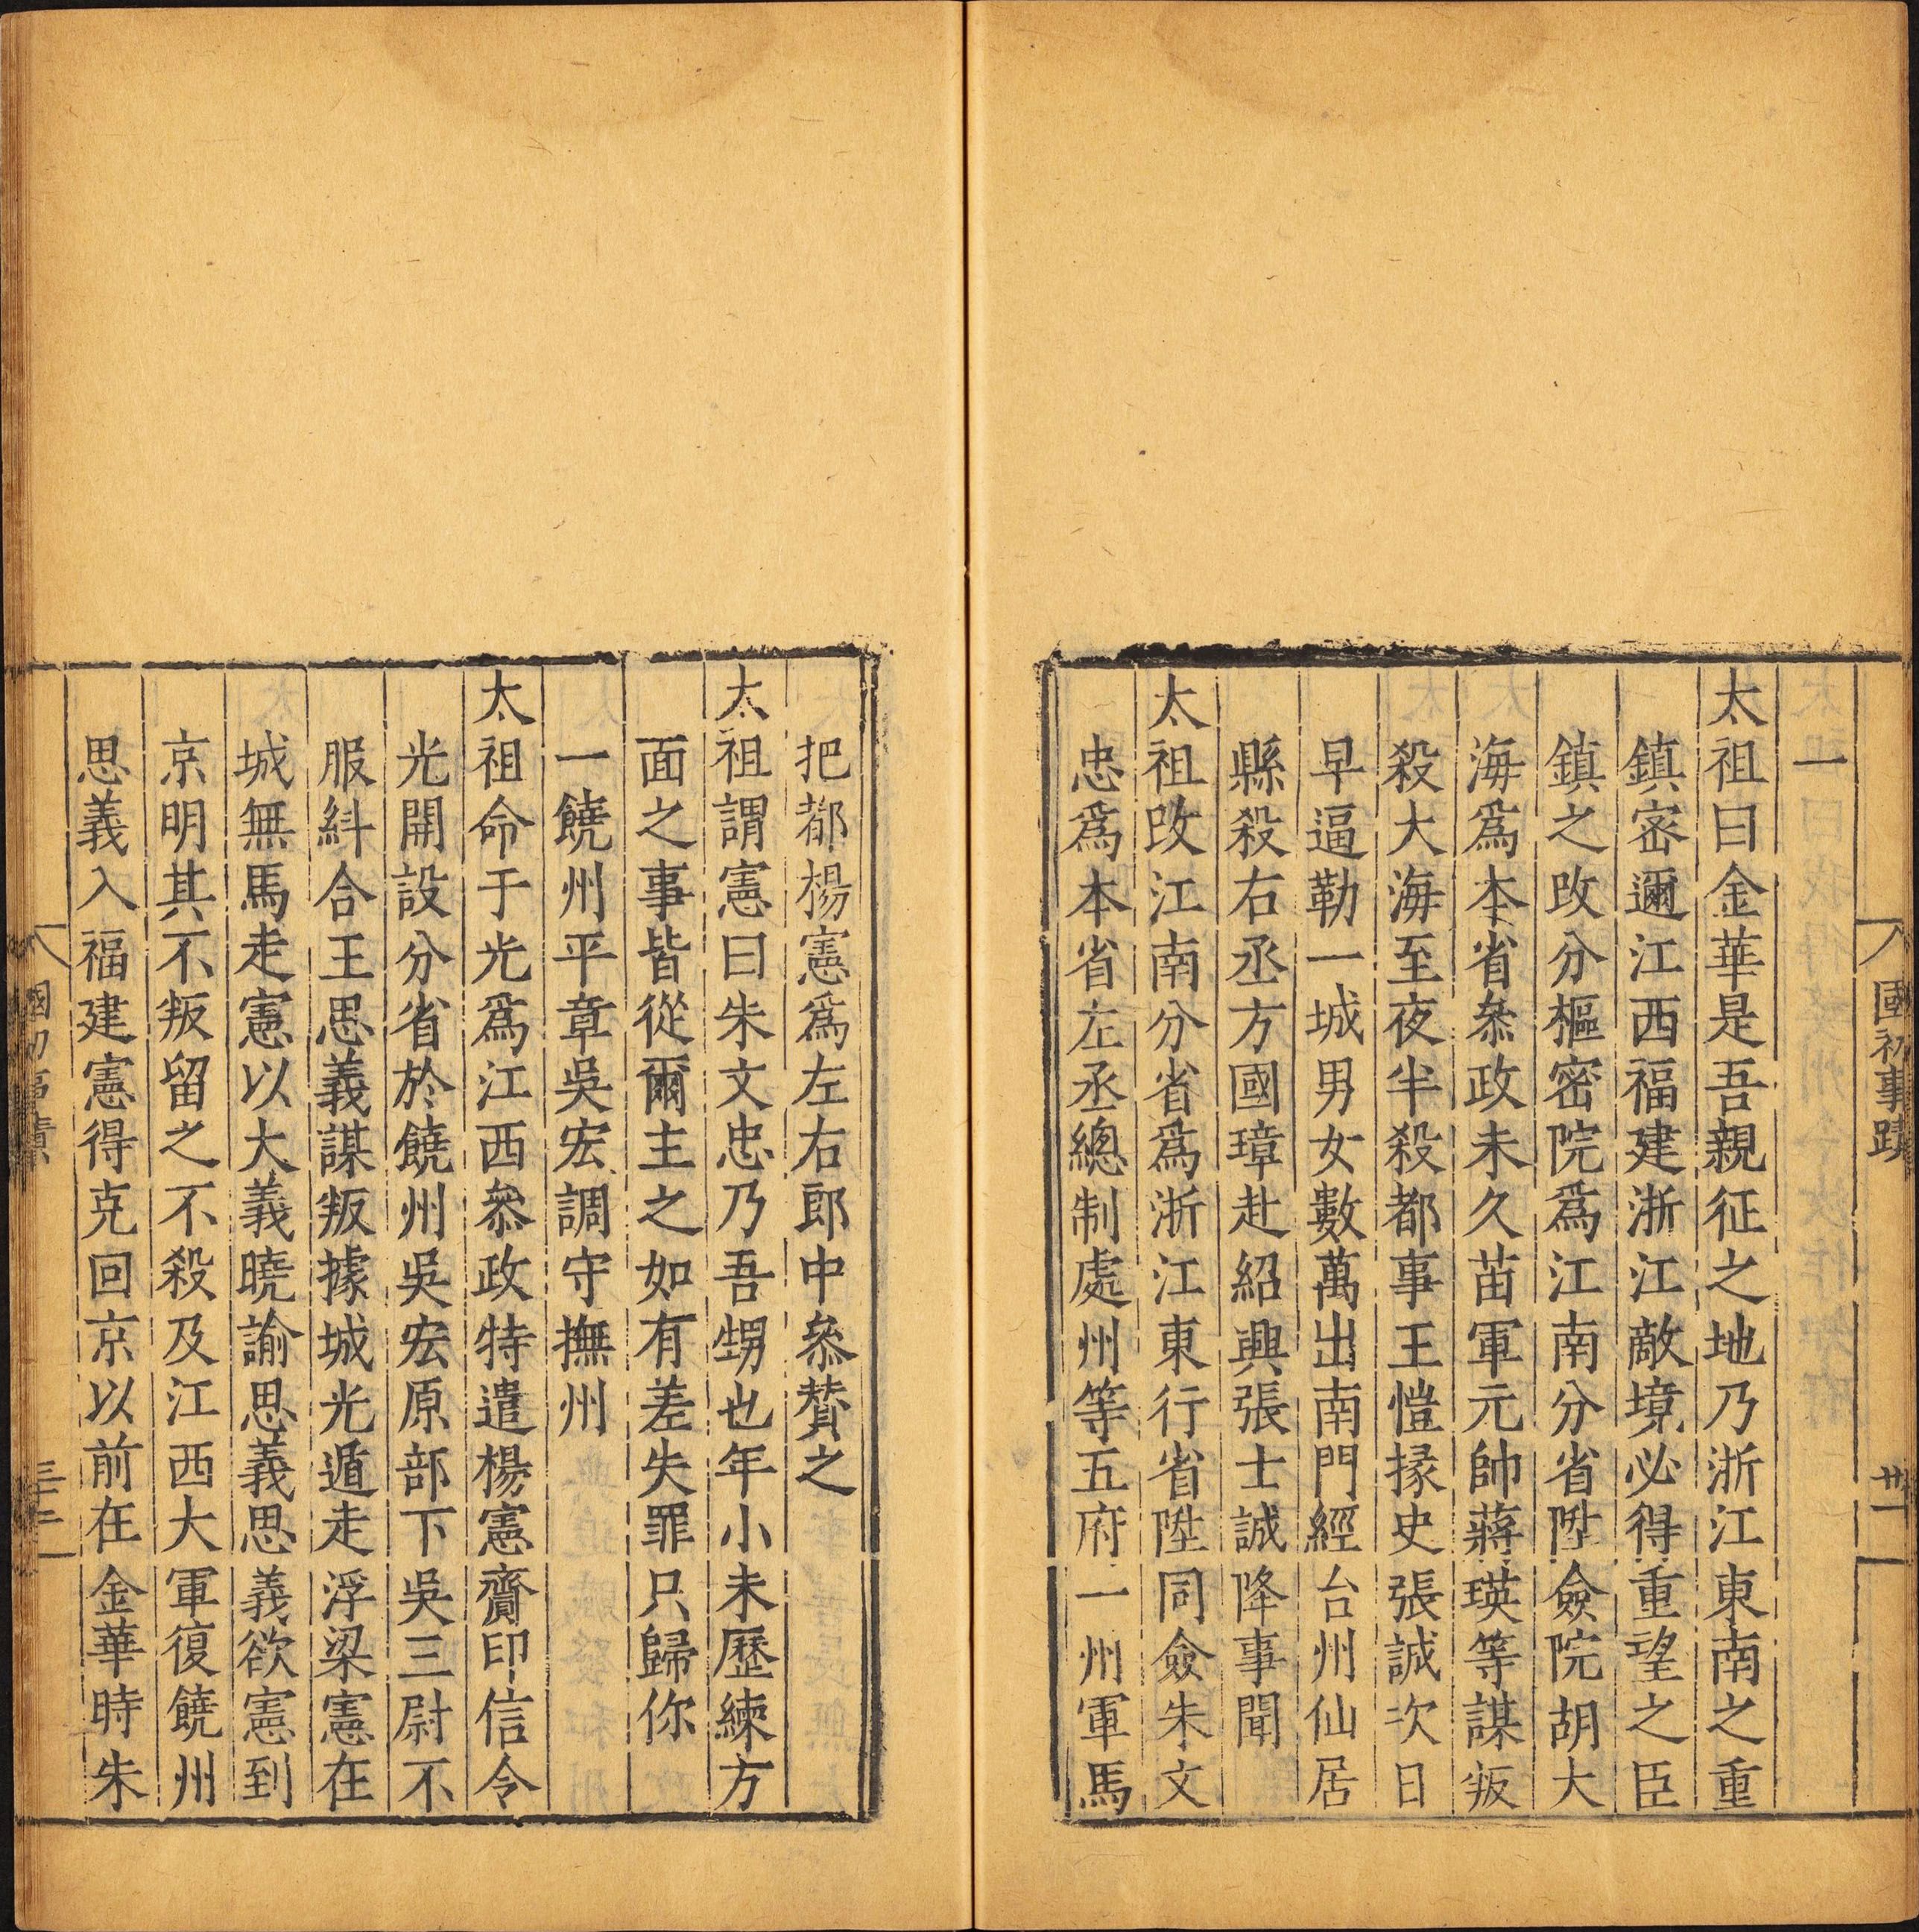 國初事蹟
廿一
一
太祖曰金華是吾親征之地乃浙江東南之重
鎮密邇江西福建浙江敵境必得重望之臣
鎮之攺分樞密院爲江南分省陞僉院胡大
海爲本省叅政未久苗軍元帥蔣瑛等謀叛
殺大海至夜半殺都事王愷掾史張誠次日
早逼勒一城男女數萬出南門經台州仙居
縣殺右丞方國璋赴紹興張士誠降事聞
太祖攺江南分省爲浙江東行省陞同僉朱文
忠爲本省左丞總制處州等五府一州軍馬
把都楊憲爲左右郎中叅贊之
太祖謂憲曰朱文忠乃吾甥也年小未歷練方
面之事皆從爾主之如有差失罪只歸你
一饒州平章吳宏調守撫州
太祖命于光爲江西叅政特遣楊憲齎印信令
光開設分省於饒州吳宏原部下吳三尉不
服糾合王思義謀叛據城光遁走浮梁憲在
城無馬走憲以大義曉諭思義思義欲憲到
京明其不叛留之不殺及江西大軍復饒州
思義入福建憲得克回京以前在金華時朱
國初事蹟